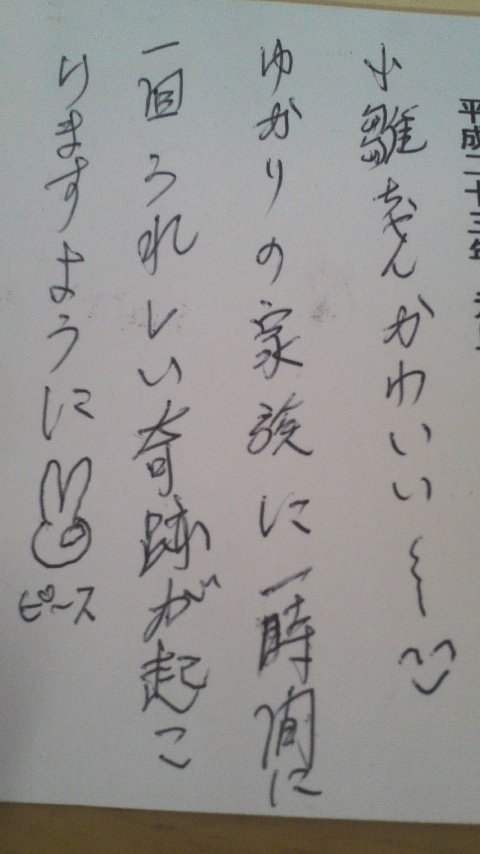 平成二十三年 元旦
小雛ちゃんかわいい〜
ゆかりの家族に一時間に
一回うれしい奇跡が起こ
りますように
ピース